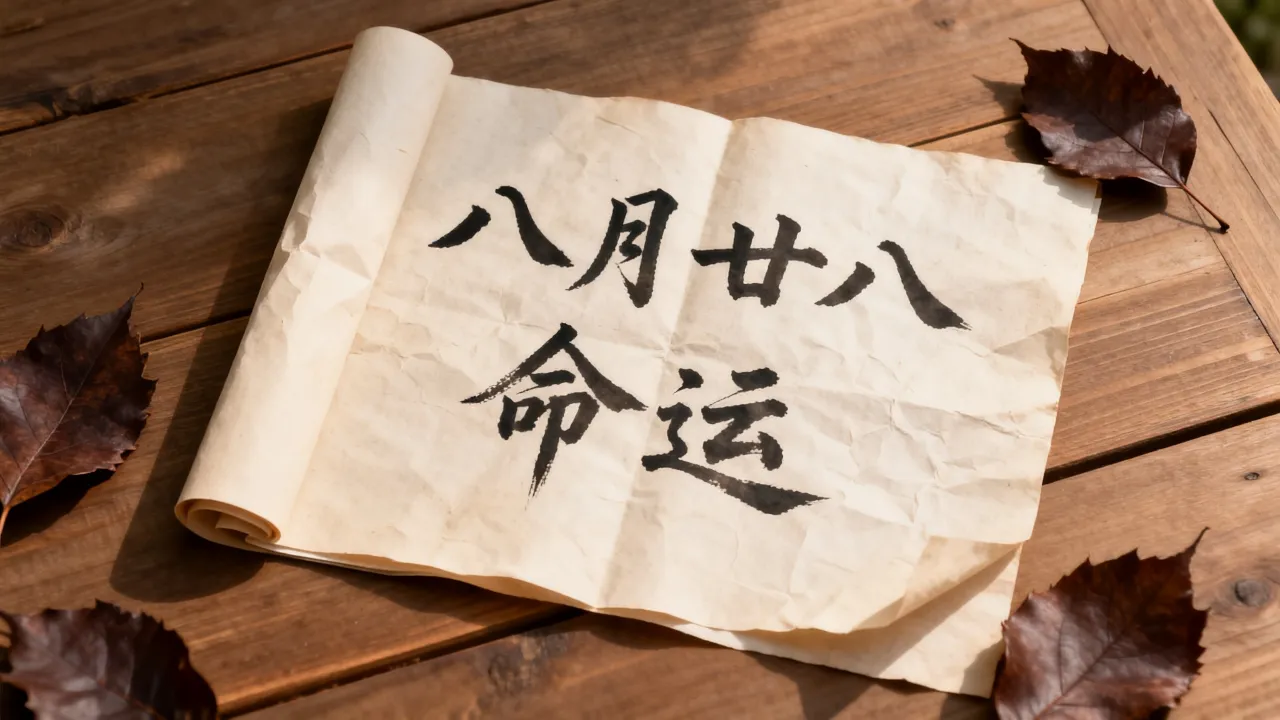 八月廿八
命运